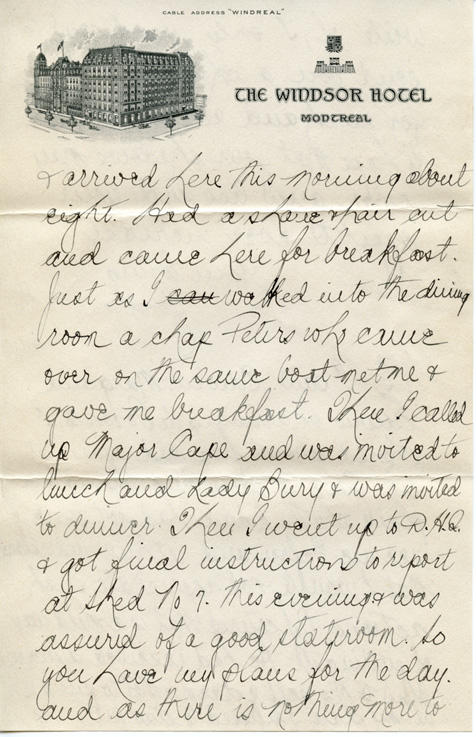 CABLE ADDRESS "WINDREAL"
THE WINDSOR HOTEL
MONTREAL
& arrived here this morning about
eight. Had a shave & hair cut
and came here for breakfast.
Just as I cau walked into the dining
room a chap Peters who came
over on the same boat met me &
gave me breakfast. Then I called
up Major Cape and was invited to
lunch and Lady Bury & was invited
to dinner. Then I went up to D.H.Q.
& got final instructions to report
at Shed No 7. this evening & was
assured of a good stateroom. So
you have my plans for the day.
and as there is nothing more to